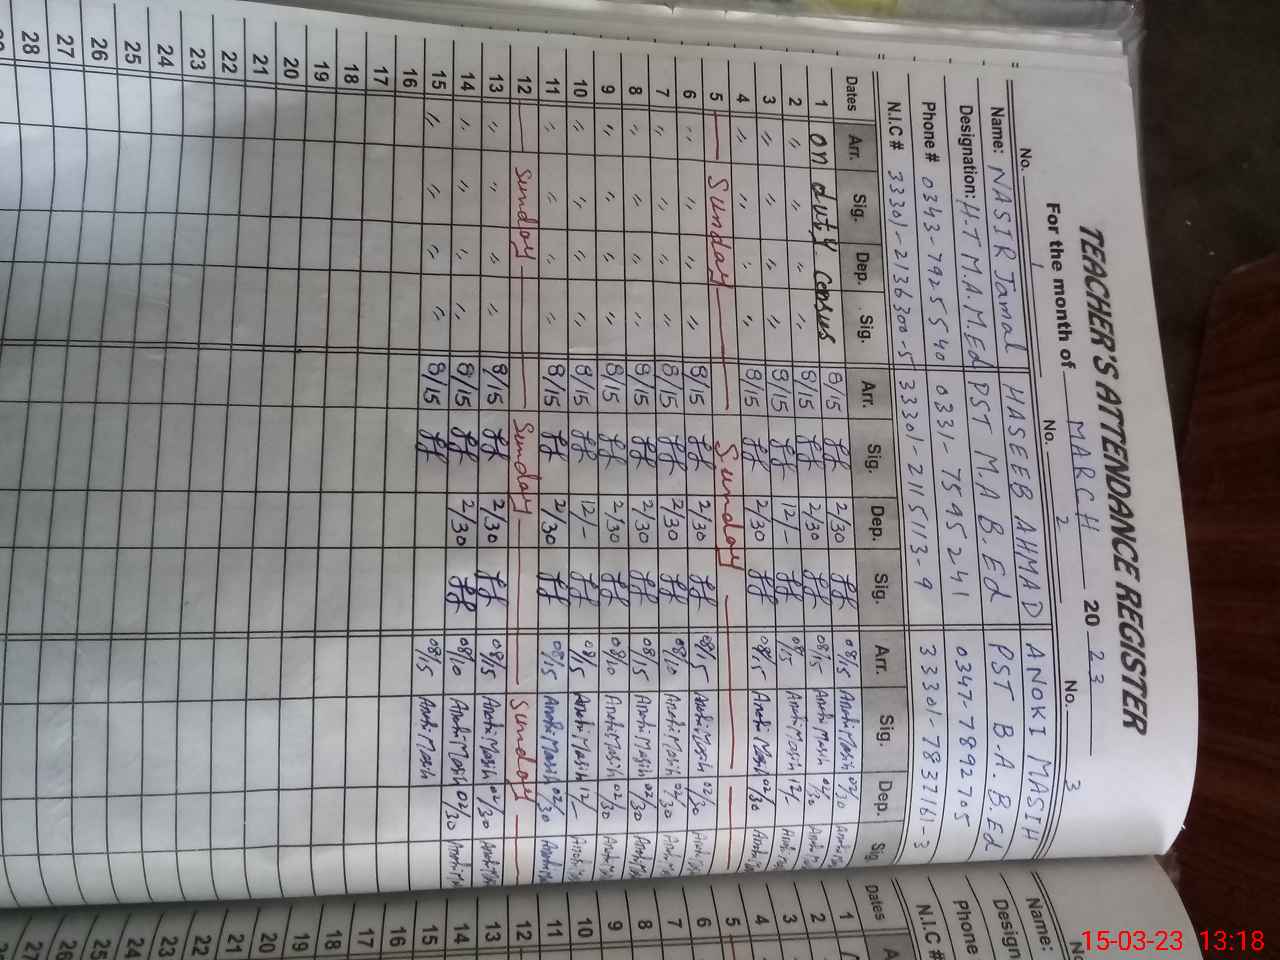 TEACHER'S ATTENDANCE REGISTER
For the month of MARCH 2023
No. 1 No. 2 No. 3
Name: NASIR Jamal HASEEB AHMAD ANOKI MASIH
Designation: H.T M.A.M.Ed PST M.A B.Ed PST B.A.B.Ed
Phone # 0343-7925540 0331-7545241 0347-7892705
N.I.C # 33301-2136300-5 33301-2115113-9 33301-7832161-3
Dates Arr. Sig. Dep. Sig. Arr. Sig. Dep. Sig. Arr. Sig. Dep. Sig.
1 on duty 8/15 2/30 08/15 Anoki Masih 02/30
2 " " " " 8/15 2/30 08/15 Anoki Masih 02/30
3 " " " " 8/15 12/- 08/15 Anoki Masih 12/-
4 " " " " 8/15 2/30 08/15 Anoki Masih 02/30
5 Sunday Sunday
6 " " " " 8/15 2/30 08/15 Anoki Masih 02/30
7 " " " " 8/15 2/30 08/10 Anoki Masih 02/30
8 " " " " 8/15 2/30 08/15 Anoki Masih 02/30
9 " " " " 8/15 2/30 08/10 Anoki Masih 02/30
10 " " " " 8/15 12/- 08/15 Anoki Masih 12/-
11 " " " " 8/15 2/30 08/15 Anoki Masih 02/30
12 Sunday Sunday Sunday
13 " " " " 8/15 2/30 08/15 Anoki Masih 02/30
14 " " " " 8/15 2/30 08/10 Anoki Masih 02/30
15 " " " " 8/15 08/15 Anoki Masih
16
17
18
19
20
21
22
23
24
25
26
27
28
Name:
Design
Phone
N.I.C #
Dates
1
2
3
4
5
6
7
8
9
10
11
12
13
14
15
16
17
18
19
20
21
22
23
24
25
26
27
15-03-23 13:18